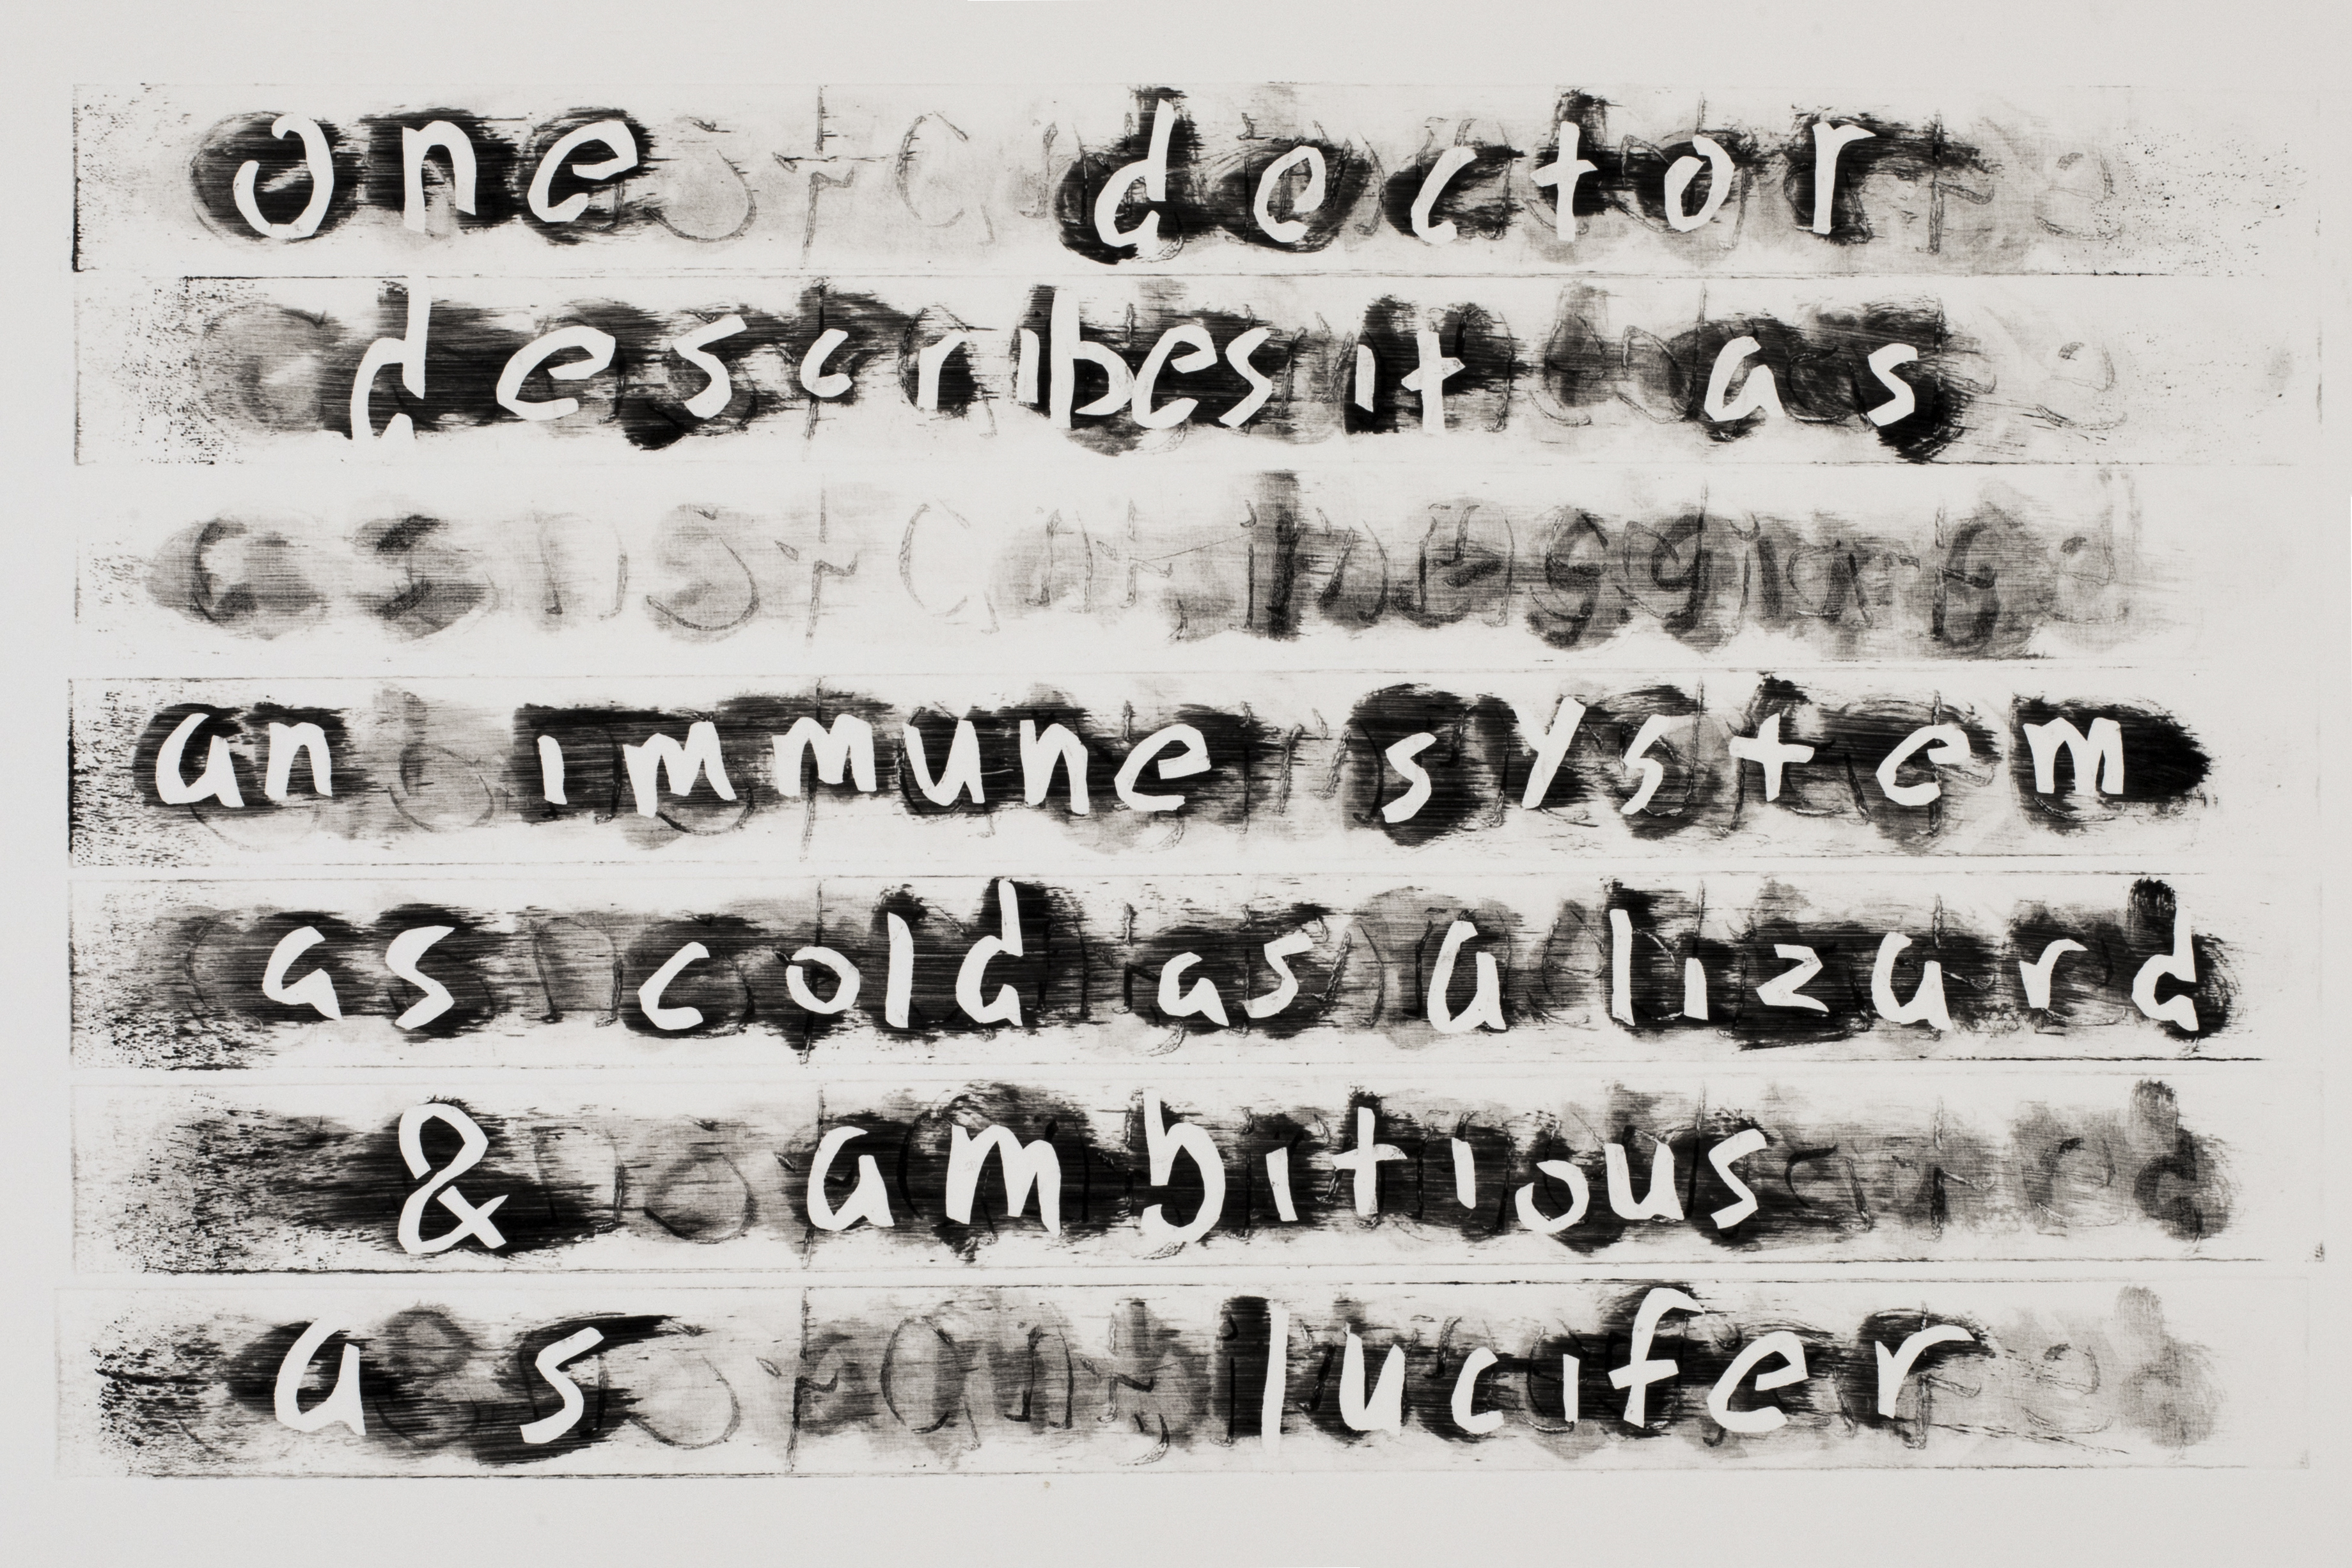 one doctor
describes it as
an immune system
as cold as a lizard
& ambitious
as lucifer